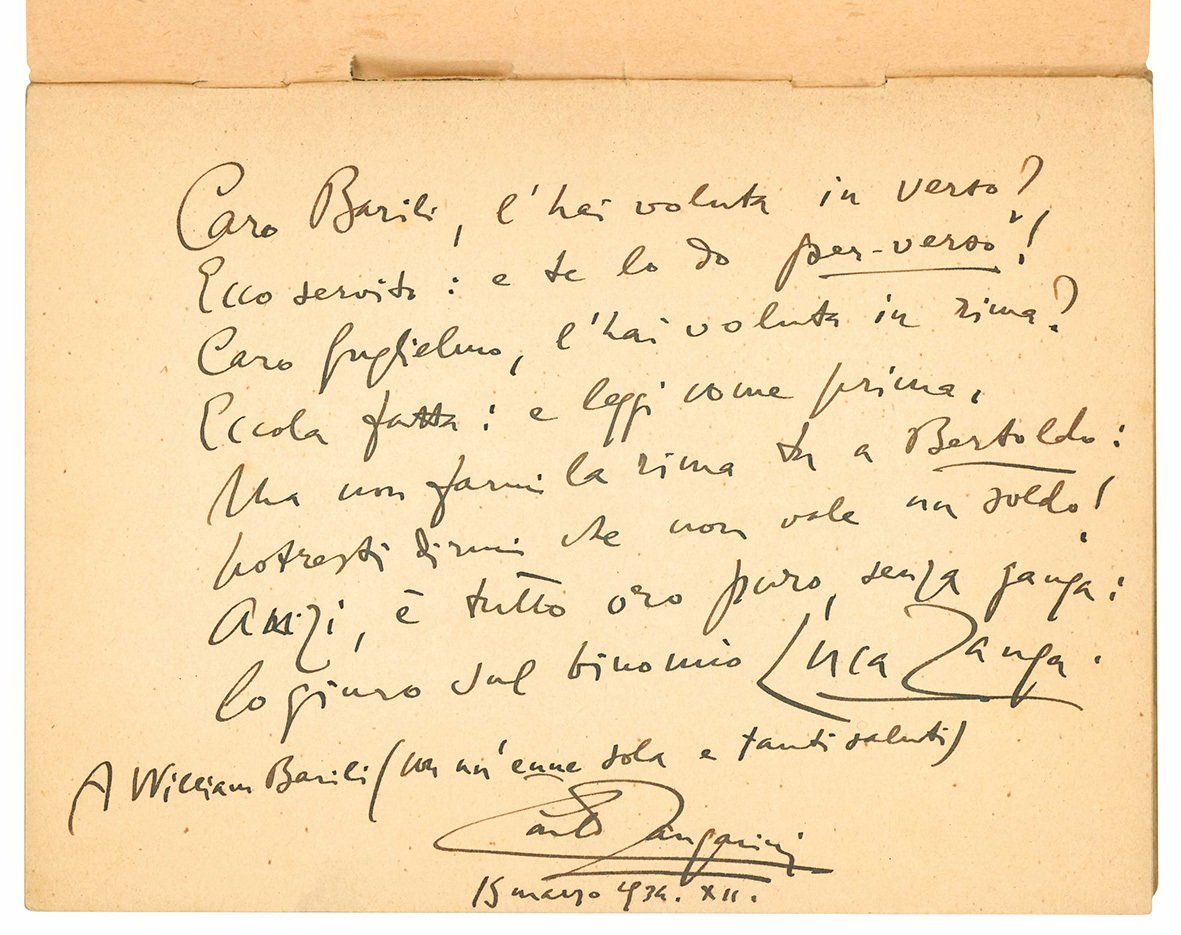 Caro Barili, l'hai voluta in verso?
Ecco servito: e te lo do per-verso"!
Caro Guglielmo, l'hai voluta in rima?
Eccola fatta: e leggi come prima.
Ma non farmi la rima tu a Bertoldo:
potresti dirmi che non vale un soldo!
Anzi, è tutto oro puro, senza ganga:
lo giuro sul binomio Luca Zanga.
A William Barili (con un'enne sola e tanti saluti)
Carlo Zangarini
15 marzo 934. XII.